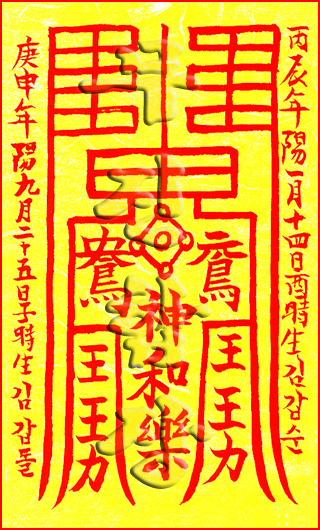 丙辰年陽一月十四日酉時生김갑순
鴛
王王力
神和樂
鴦
王王力
庚申年陽九月二十五日子時生김갑돌